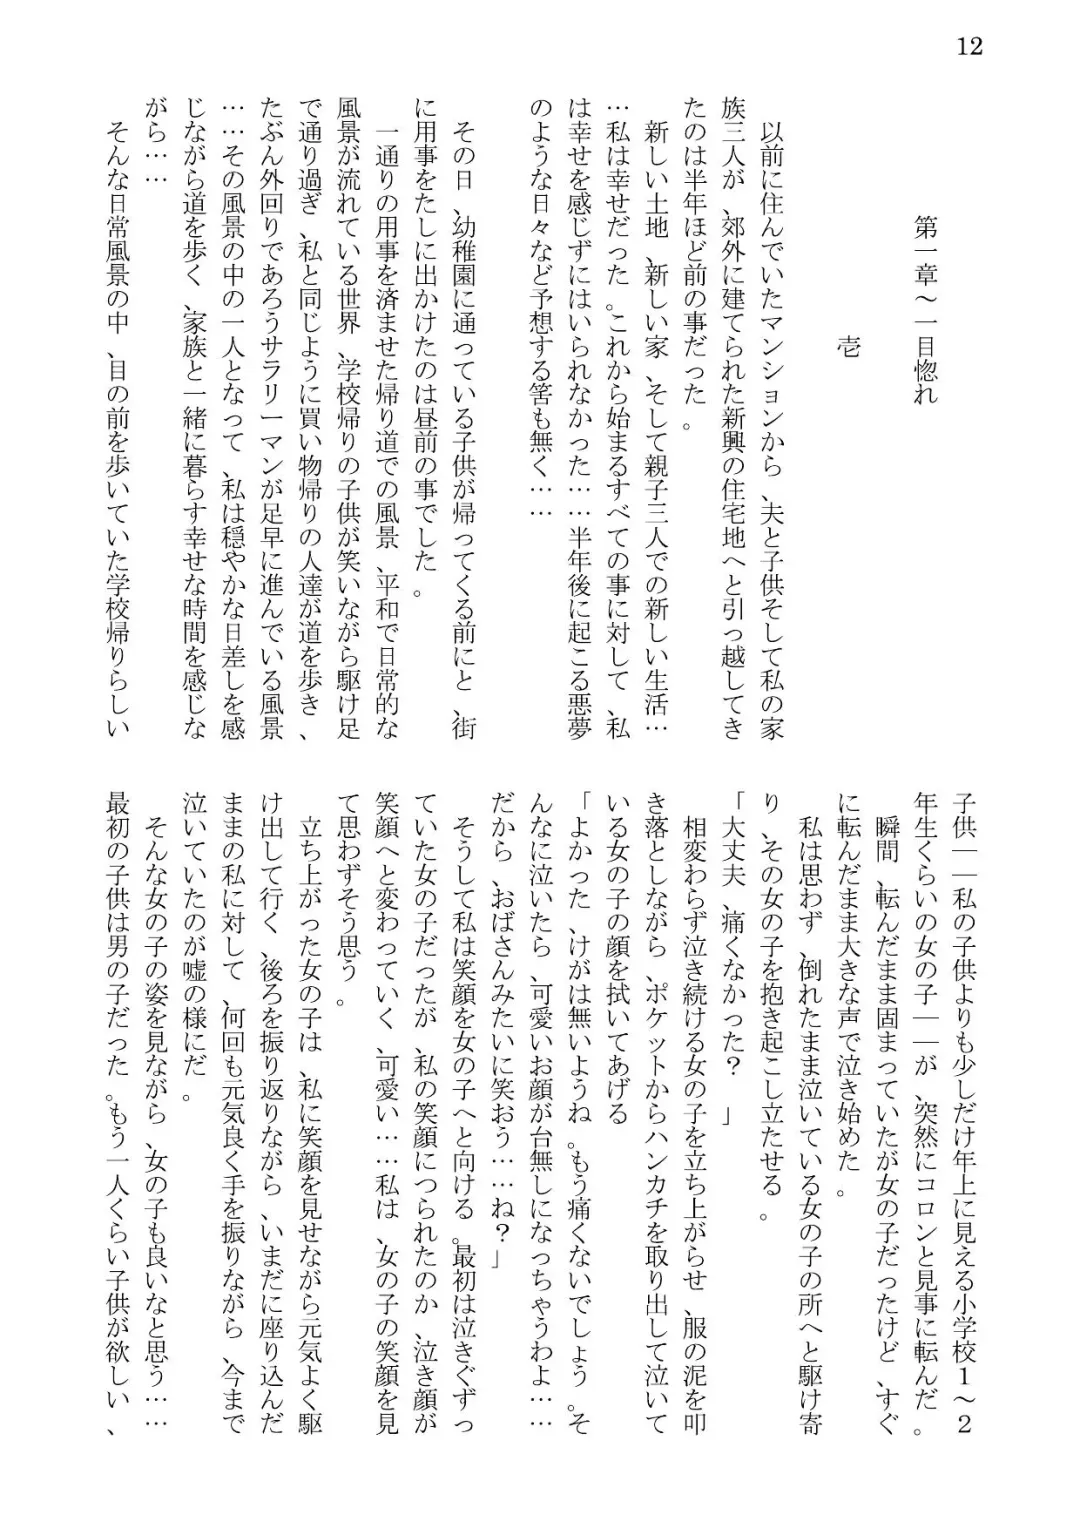 12
第一章～一目惚れ
壱
以前に住んでいたマンションから、夫と子供そして私の家
族三人が、郊外に建てられた新興の住宅地へと引っ越してき
たのは半年ほど前の事だった。
新しい土地、新しい家、そして親子三人での新しい生活…
…私は幸せだった。これから始まるすべての事に対して、私
は幸せを感じずにはいられなかった……半年後に起こる悪夢
のような日々など予想する筈も無く……
その日、幼稚園に通っている子供が帰ってくる前にと、街
に用事をたしに出かけたのは昼前の事でした。
一通りの用事を済ませた帰り道での風景、平和で日常的な
風景が流れている世界、学校帰りの子供が笑いながら駆け足
で通り過ぎ、私と同じように買い物帰りの人達が道を歩き、
たぶん外回りであろうサラリーマンが足早に進んでいる風景
……その風景の中の一人となって、私は穏やかな日差しを感
じながら道を歩く、家族と一緒に暮らす幸せな時間を感じな
がら……
そんな日常風景の中、目の前を歩いていた学校帰りらしい
子供――私の子供よりも少しだけ年上に見える小学校１～２
年生くらいの女の子――が、突然にコロンと見事に転んだ。
瞬間、転んだまま固まっていたが女の子だったけど、すぐ
に転んだまま大きな声で泣き始めた。
私は思わず、倒れたまま泣いている女の子の所へと駆け寄
り、その女の子を抱き起こし立たせる。
「大丈夫、痛くなかった？」
相変わらず泣き続ける女の子を立ち上がらせ、服の泥を叩
き落としながら、ポケットからハンカチを取り出して泣いて
いる女の子の顔を拭いてあげる
「よかった、けがは無いようね。もう痛くないでしょう。そ
んなに泣いたら、可愛いお顔が台無しになっちゃうわよ……
だから、おばさんみたいに笑おう……ね？」
そうして私は笑顔を女の子へと向ける。最初は泣きぐずっ
ていた女の子だったが、私の笑顔につられたのか、泣き顔が
笑顔へと変わっていく、可愛い……私は、女の子の笑顔を見
て思わずそう思う。
立ち上がった女の子は、私に笑顔を見せながら元気よく駆
け出して行く、後ろを振り返りながら、いまだに座り込んだ
ままの私に対して、何回も元気良く手を振りながら、今まで
泣いていたのが嘘の様にだ。
そんな女の子の姿を見ながら、女の子も良いなと思う……
最初の子供は男の子だった。もう一人くらい子供が欲しい、